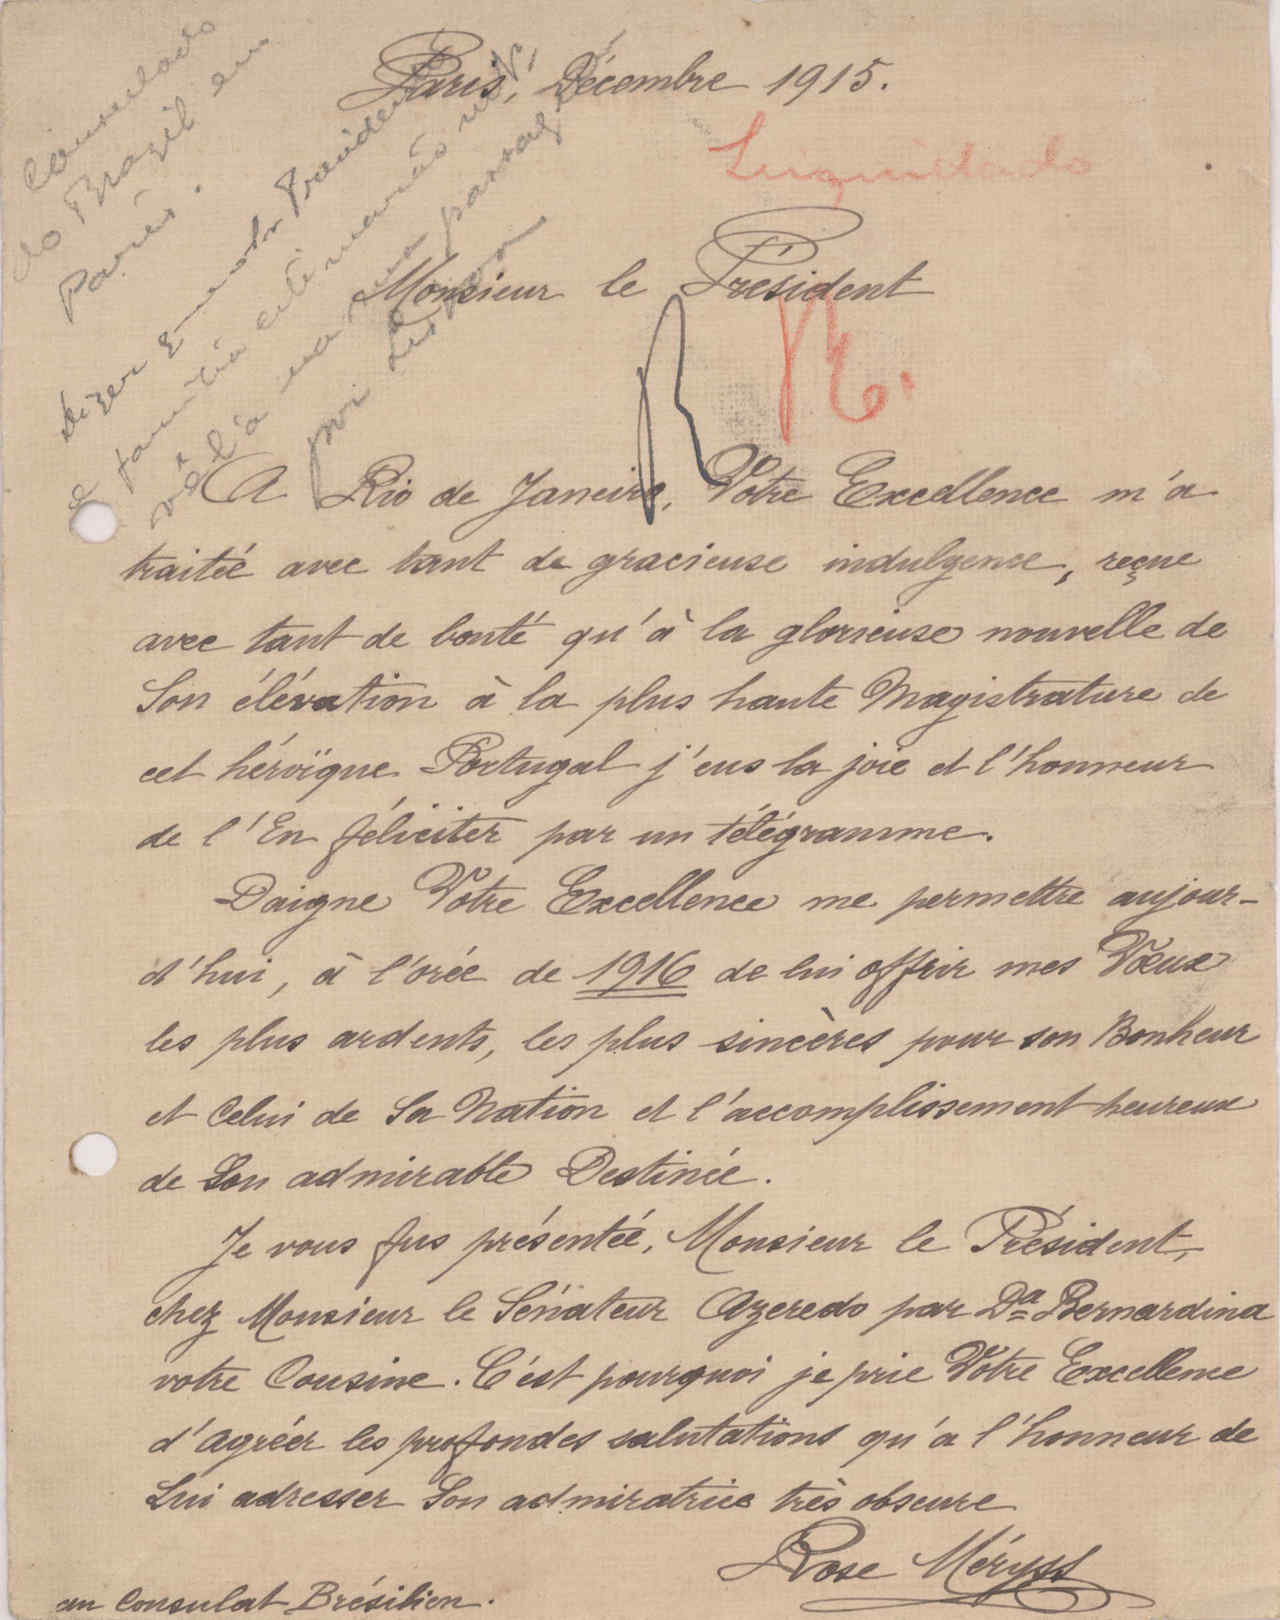 Paris, Décembre 1915.
Consulado
do Brazil em
Paris.
Liquidado
Monsieur le Président
R.
A Rio de Janeiro, Votre Excellence m'a
traitée avec tant de gracieuse indulgence, reçue
avec tant de bonté qu'à la glorieuse nouvelle de
Son élévation à la plus haute Magistrature de
cet héroïque Portugal j'eus la joie et l'honneur
de l'En féliciter par un télégramme.
Daigne Votre Excellence me permettre aujour-
d'hui, à l'orée de 1916 de lui offrir mes Vœux
les plus ardents, les plus sincères pour son Bonheur
et Celui de Sa Nation et l'accomplissement heureux
de Son admirable Destinée.
Je vous fus présentée, Monsieur le Président,
chez Monsieur le Sénateur Azeredo par Da Bernardina
votre Cousine. C'est pourquoi je prie Votre Excellence
d'Agréer les profondes salutations qu'a l'honneur de
Lui adresser Son admiratrice très obscure
Rose Méryss
au Consulat Brésilien.